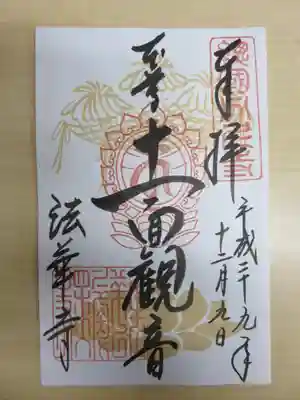 奉拝
平成二十九年
十二月九日
本尊十一面観音
法華寺